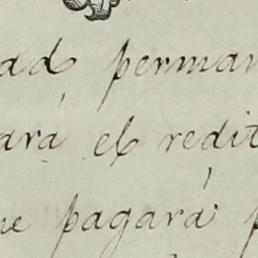 ad perman
ará el redit
ue pagará p